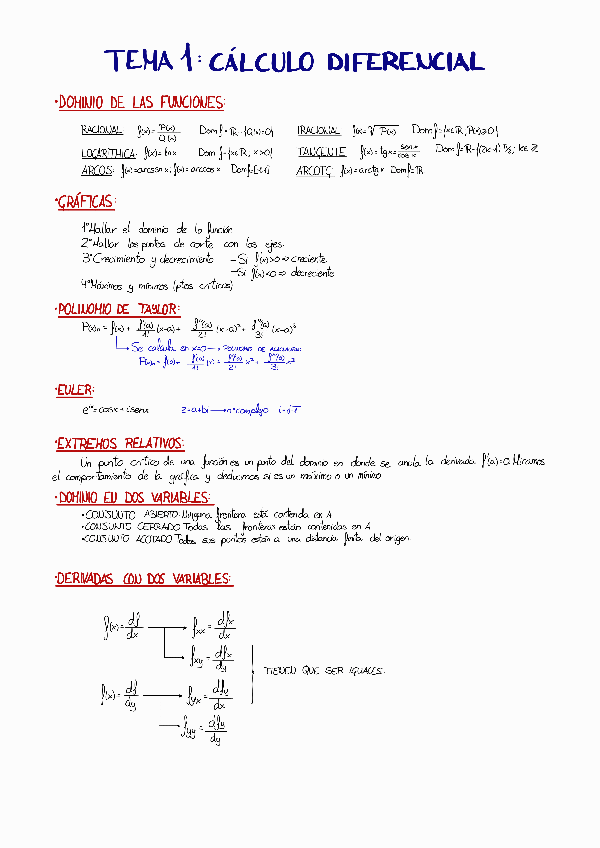 TEMA 1: CÁLCULO DIFERENCIAL
·DOMINIO DE LAS FUNCIONES:
RACIONAL f(x)= P(x)/Q(x) Dom f= ℝ-{Q(x)=0} IRACIONAL f(x)= √P(x) Dom f={x∈ℝ, P(x)≥0}
LOGARITMICA: f(x)= ln x Dom f={x∈ℝ, x>0} TANGENTE f(x)= tg x= sen x/cos x
ARCOS: f(x)=arcsen x; f(x)= arccos x ARCOTG: f(x)=arctg x Dom f=ℝ
·GRÁFICAS:
1º Hallar el dominio de la función
2º Hallar los puntos de corte con los ejes.
3º Crecimiento y decrecimiento - Si f'(x)>0 ⇒ creciente
- Si f'(x)<0 ⇒ decreciente
4º Máximos y mínimos (ptos críticos)
·POLINOMIO DE TAYLOR:
f'(a)/1! (x-a)+ f''(a)/2! (x-a)²+ f'''(a)/3! (x-a)³
Se calcula en x=0 → POLINOMIO DE
·EULER:
= cosx + isenx z=a+bi → nº complejo i=√-1
·EXTREMOS RELATIVOS:
Un punto crítico de una función es un punto del dominio en donde se anula la derivada f'(a)=0. Miramos
el comportamiento de la gráfica y deducimos si es un máximo o un mínimo
·DOMINIO EN DOS VARIABLES:
·CONJUNTO ABIERTO: Ninguna frontera está contenida en A
·CONJUNTO CERRADO Todas las fronteras están contenidas en A
·CONJUNTO ACOTADO Todos sus puntos están a una distancia finita del origen
·DERIVADAS CON DOS VARIABLES:
f(x)= df/dx → fxx = dfx/dx
fxy = dfx/dy
TIENEN QUE SER IGUALES.
f(x)= df/dy → fyx = dfy/dx
→ fyy = dfy/dy